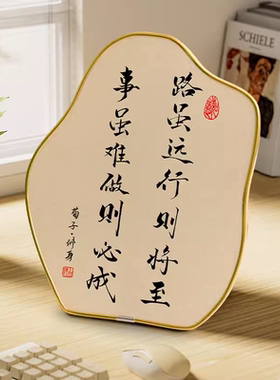 SCHIELE
路虽远行则将至
事虽难做则必成
荀子·修身